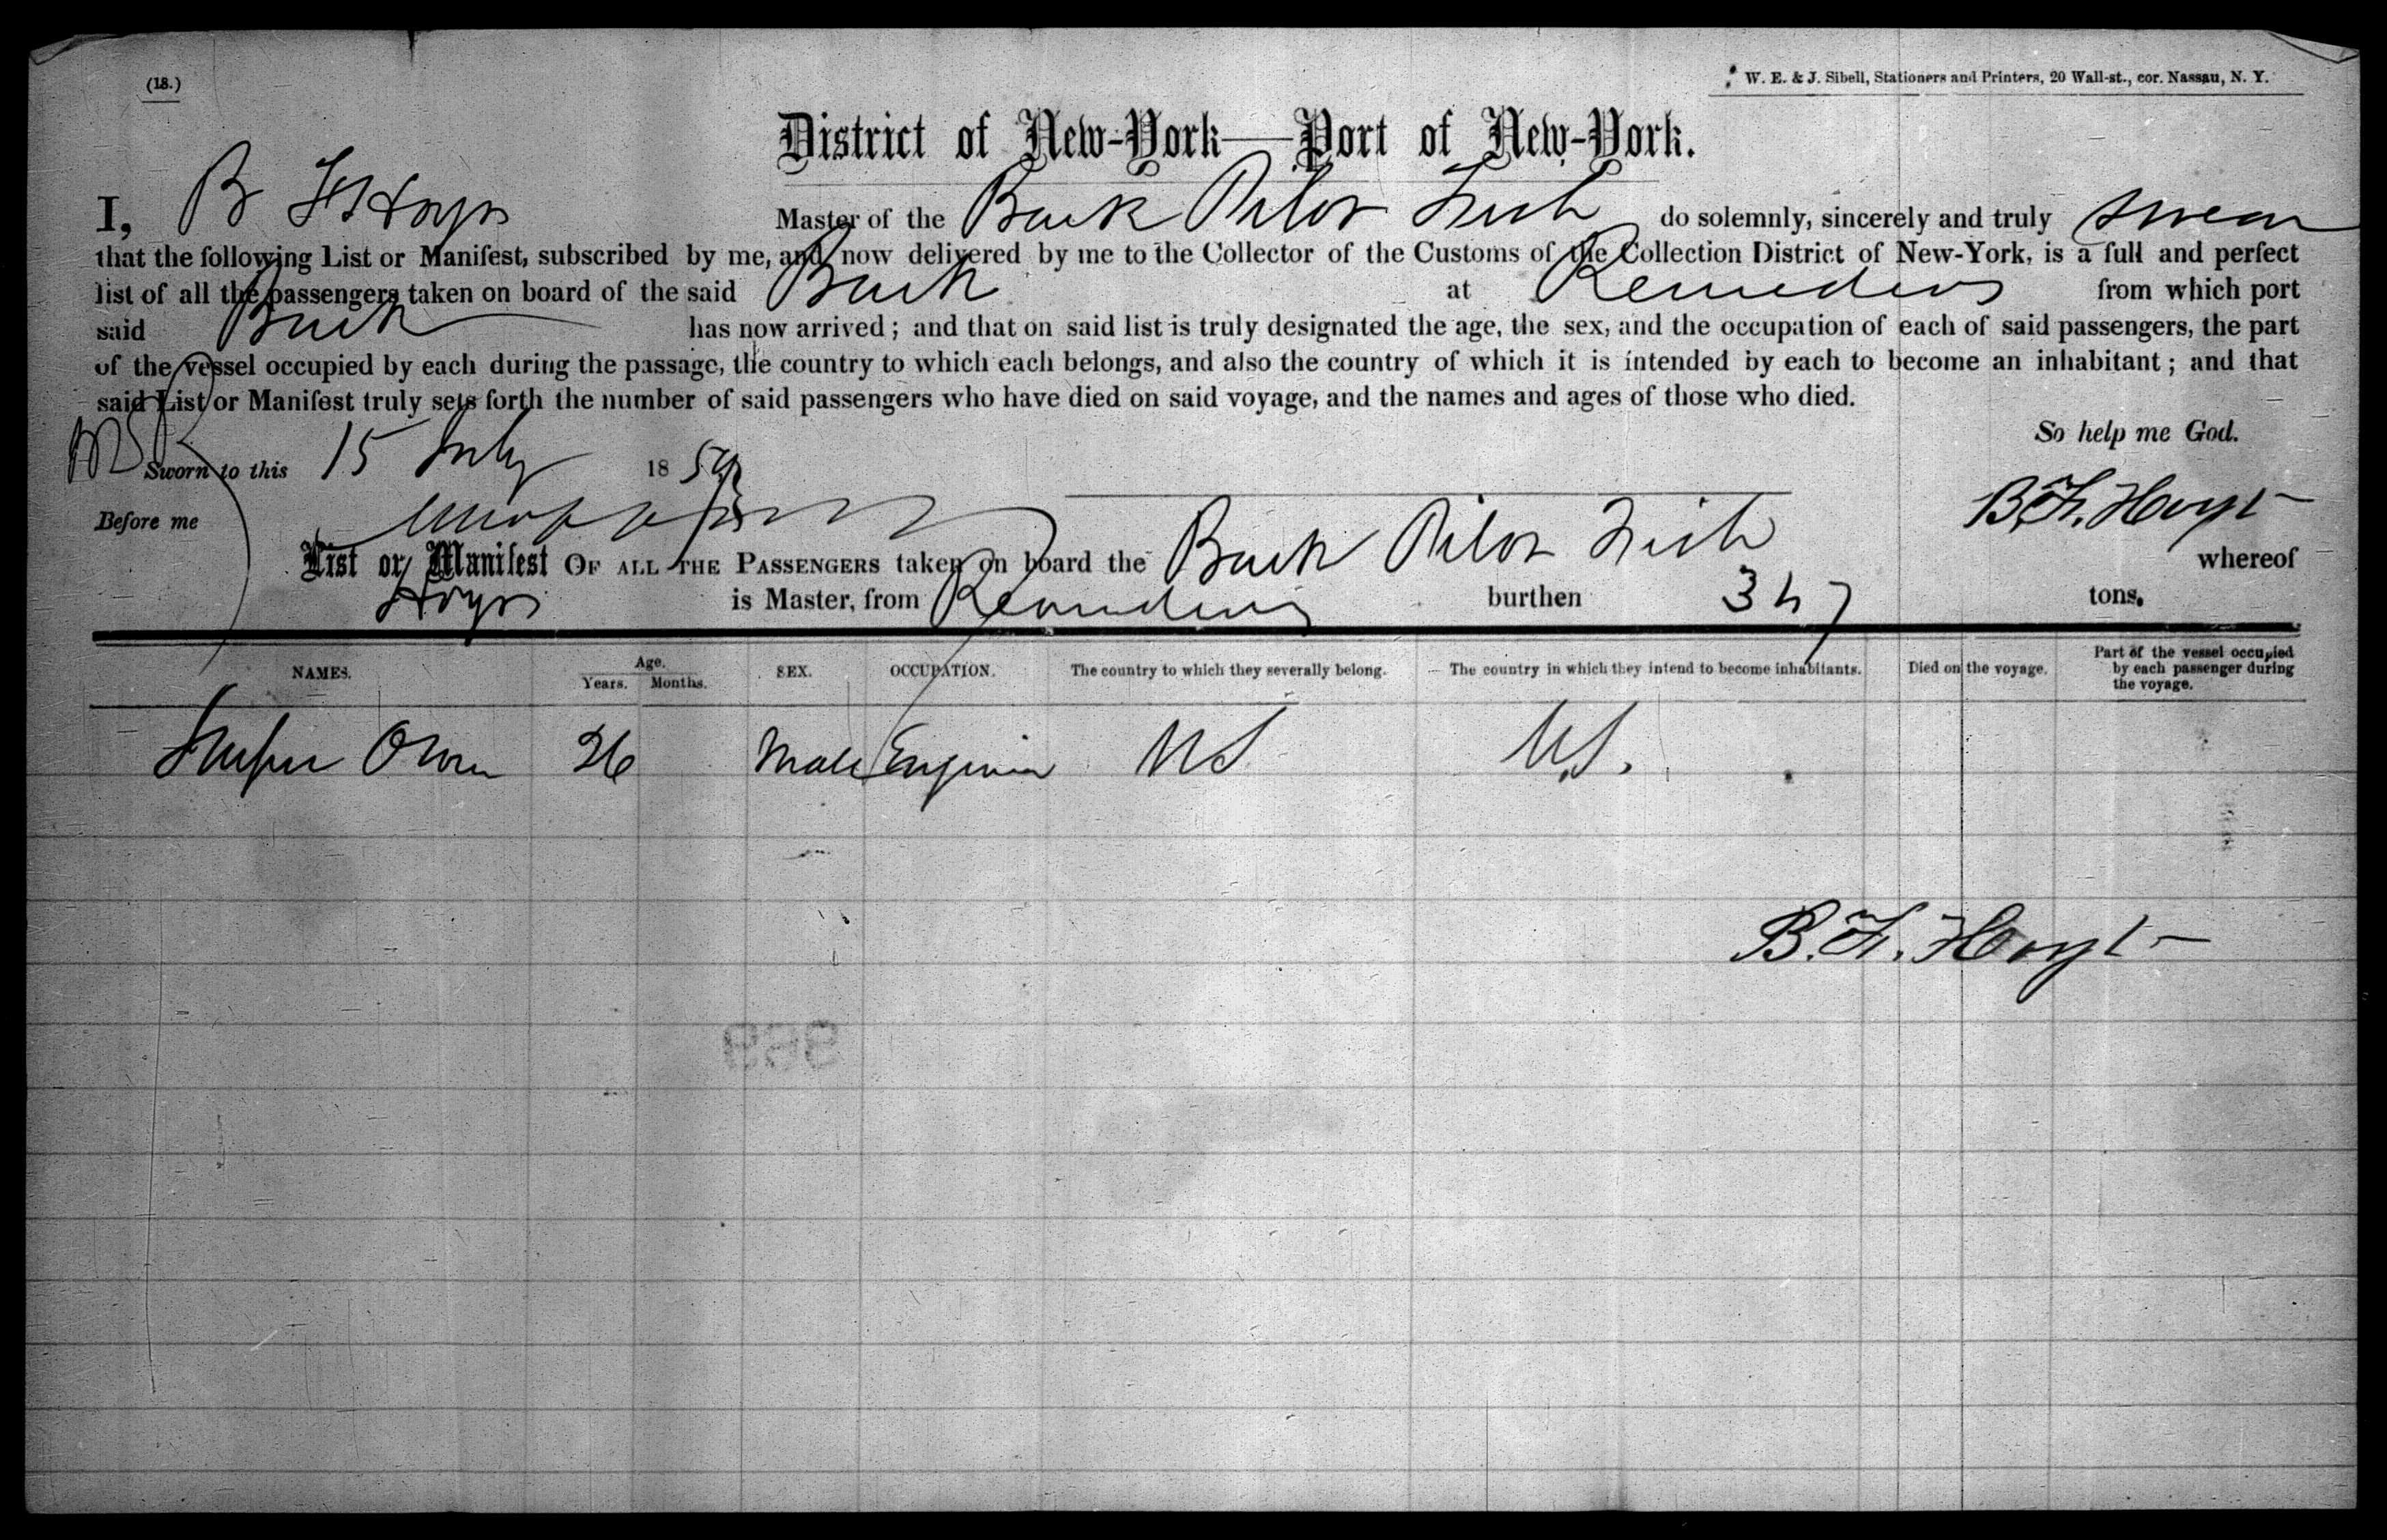 (18.)
W. E. & J. Sibell, Stationers and Printers, 20 Wall-st., cor. Nassau, N. Y.
District of New-York—Port of New-York.
I, B F Hoyt Master of the Bark Pilot Fish do solemnly, sincerely and truly swear
that the following List or Manifest, subscribed by me, and now delivered by me to the Collector of the Customs of the Collection District of New-York, is a full and perfect
list of all the passengers taken on board of the said Bark at Remedios from which port
said Bark has now arrived; and that on said list is truly designated the age, the sex, and the occupation of each of said passengers, the part
of the vessel occupied by each during the passage, the country to which each belongs, and also the country of which it is intended by each to become an inhabitant; and that
said List or Manifest truly sets forth the number of said passengers who have died on said voyage, and the names and ages of those who died.
So help me God.
Sworn to this 15 July 1859
B. F. Hoyt
Before me
List or Manifest OF ALL THE PASSENGERS taken on board the Bark Pilot Fish whereof
Hoyt is Master, from Remedios burthen 347 tons.
NAMES. Age. Years. Months. SEX. OCCUPATION. The country to which they severally belong. The country in which they intend to become inhabitants. Died on the voyage. Part of the vessel occupied by each passenger during the voyage.
26 Male Engineer US U.S.
B. F. Hoyt